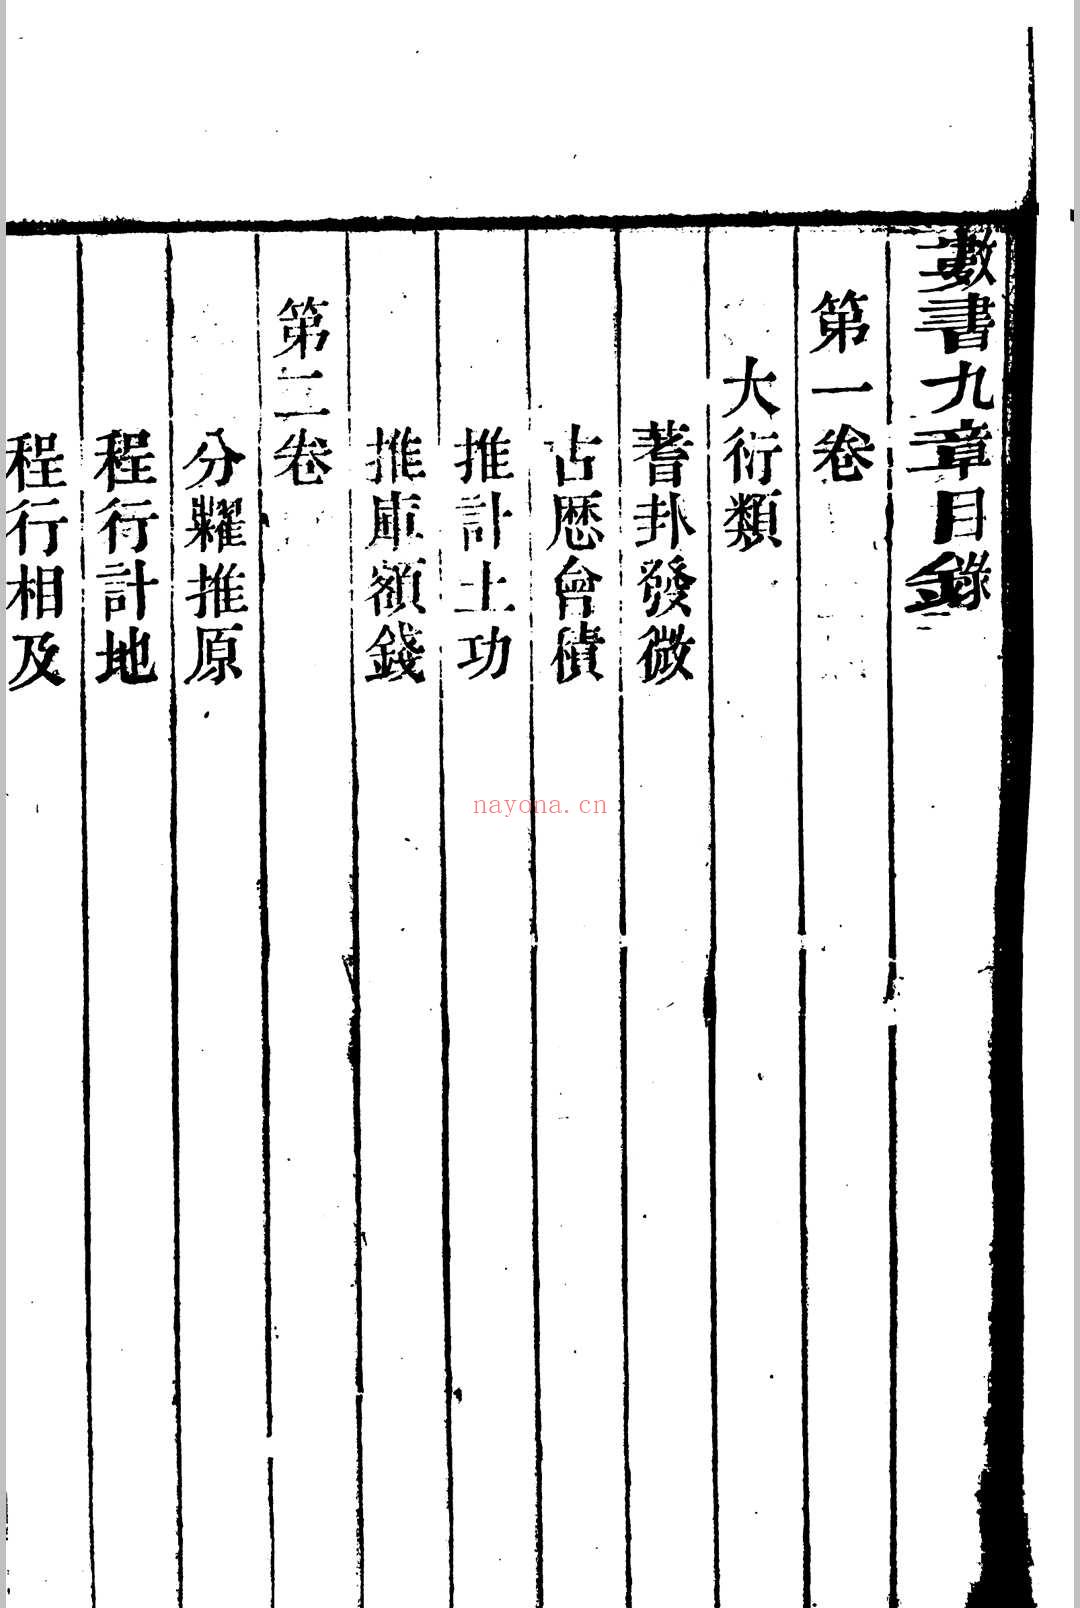 數書九章目錄
第一卷
大衍類
蓍卦發微
古厯會積
推計土功
推庫額錢
第二卷
分糶推原
程行計地
程行相及
nayona.cn